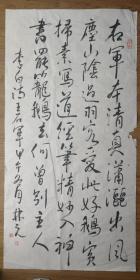 右軍本清真瀟灑出風
塵山陰過羽客愛此好鵝賓
掃素寫道經筆精妙入神
書罷籠鵝去何曾別主人
李白詩王右軍甲午